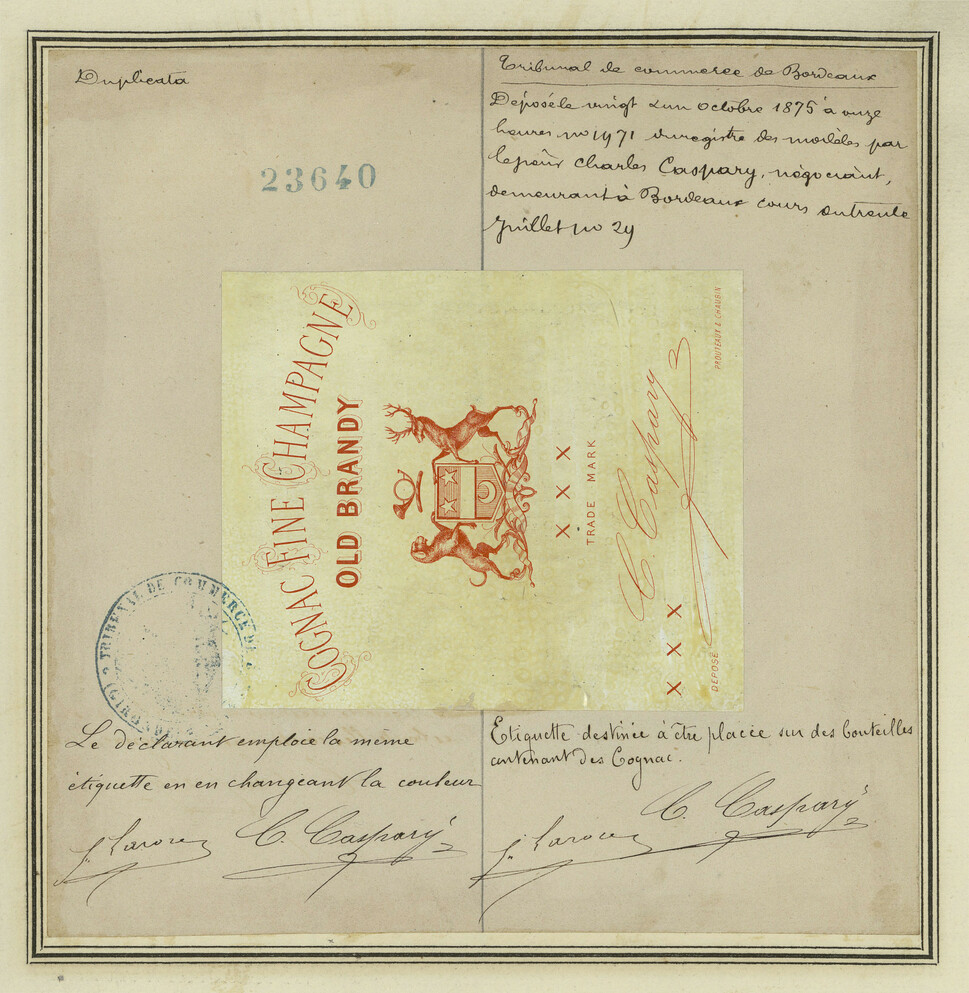 Duplicata
23640
Tribunal de commerce de Bordeaux
Déposé le vingt et un octobre 1875 à onze
heures no 1971 du registre des modèles par
le sieur Charles Caspary, négociant,
demeurant à Bordeaux cours du trente
Juillet no 29
COGNAC FINE CHAMPAGNE
OLD BRANDY
X X X
TRADE MARK
C. Caspary
X X X
DÉPOSÉ
PROUTEAUX & CHAUBIN
TRIBUNAL DE COMMERCE DE
Le déclarant emploie la même
étiquette en en changeant la couleur
C. Caspary
Etiquette destinée à être placée sur des bouteilles
contenant des Cognac.
C. Caspary